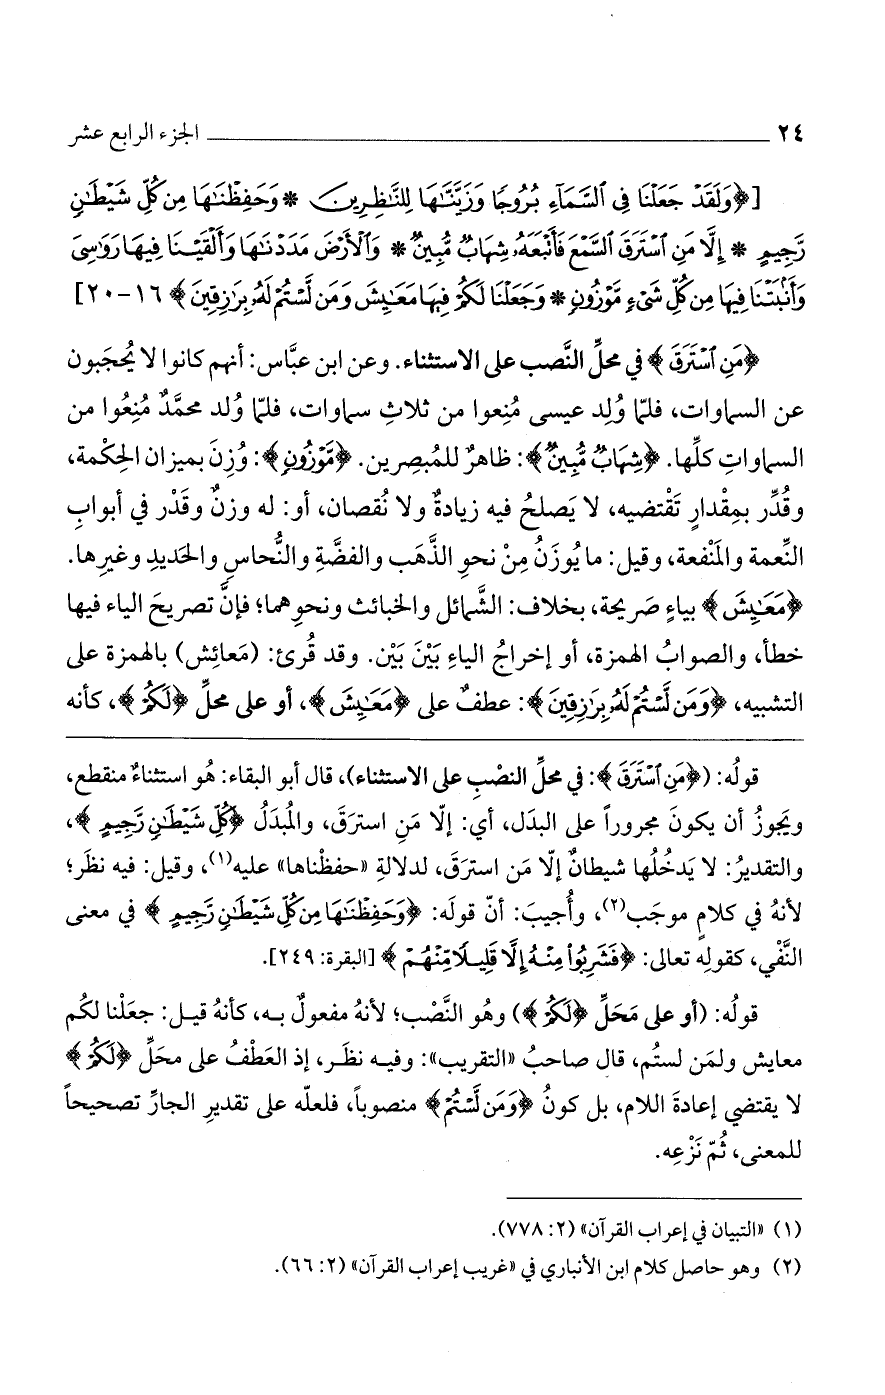 ٢٤ الجزء الرابع عشر
[﴿وَلَقَدْ جَعَلْنَا فِى ٱلسَّمَآءِ بُرُوجًا وَزَيَّنَّٰهَا لِلنَّٰظِرِينَ * وَحَفِظْنَٰهَا مِن كُلِّ شَيْطَٰنٍ
رَّجِيمٍ * إِلَّا مَنِ ٱسْتَرَقَ ٱلسَّمْعَ فَأَتْبَعَهُۥ شِهَابٌ مُّبِينٌ * وَٱلْأَرْضَ مَدَدْنَٰهَا وَأَلْقَيْنَا فِيهَا رَوَٰسِىَ
وَأَنۢبَتْنَا فِيهَا مِن كُلِّ شَىْءٍ مَّوْزُونٍ * وَجَعَلْنَا لَكُمْ فِيهَا مَعَٰيِشَ وَمَن لَّسْتُمْ لَهُۥ بِرَٰزِقِينَ﴾ ١٦-٢٠]
﴿مَنِ ٱسْتَرَقَ﴾ في محلِّ النَّصب على الاستثناء. وعن ابن عبَّاس: أنهم كانوا لا يُحجَبون
عن السماوات، فلمّا وُلِد عيسى مُنِعوا من ثلاثِ سماوات، فلمّا وُلد محمَّدٌ مُنِعُوا من
السماواتِ كلِّها. ﴿شِهَابٌ مُّبِينٌ﴾: ظاهرٌ للمُبصِرين. ﴿مَّوْزُونٍ﴾: وُزِنَ بميزان الحِكْمة،
وقُدِّر بمِقْدارٍ تَقْتضيه، لا يَصلحُ فيه زيادةٌ ولا نُقصان، أو: له وزنٌ وقَدْر في أبوابِ
النِّعمة والمَنْفعة، وقيل: ما يُوزَنُ مِنْ نحوِ الذَّهَب والفضَّةِ والنُّحاسِ والحَديدِ وغيرِها.
﴿مَعَٰيِشَ﴾ بياءٍ صَريحة، بخلاف: الشَّمائل والخبائث ونحوِهما؛ فإنَّ تصريحَ الياء فيها
خطأ، والصوابُ الهمزة، أو إخراجُ الياءِ بَيْنَ بَيْن. وقد قُرئ: (مَعائِش) بالهمزة على
التشبيه، ﴿وَمَن لَّسْتُمْ لَهُۥ بِرَٰزِقِينَ﴾: عطفٌ على ﴿مَعَٰيِشَ﴾، أو على محلِّ ﴿لَكُمْ﴾، كأنه
قولُه: (﴿مَنِ ٱسْتَرَقَ﴾: في محلِّ النصْبِ على الاستثناء)، قال أبو البقاء: هُو استثناءٌ منقطع،
ويَجوزُ أن يكونَ مجروراً على البدَل، أي: إلّا مَنِ استرَقَ، والمُبدَلُ ﴿كُلِّ شَيْطَٰنٍ رَّجِيمٍ﴾،
والتقديرُ: لا يَدخُلُها شيطانٌ إلّا مَن استرَقَ، لدلالةِ «حفظْناها» عليه(١)، وقيل: فيه نظَر؛
لأنهُ في كلامٍ موجَب(٢)، وأُجيبَ: أنّ قولَه: ﴿وَحَفِظْنَٰهَا مِن كُلِّ شَيْطَٰنٍ رَّجِيمٍ﴾ في معنى
النَّفْي، كقولِه تعالى: ﴿فَشَرِبُوا۟ مِنْهُ إِلَّا قَلِيلًا مِّنْهُمْ﴾ [البقرة: ٢٤٩].
قولُه: (أو على مَحَلِّ ﴿لَكُمْ﴾) وهُو النَّصْب؛ لأنهُ مفعولٌ به، كأنهُ قيل: جعَلْنا لكُم
معايش ولمَن لستُم، قال صاحبُ «التقريب»: وفيه نظَر، إذ العَطْفُ على محَلِّ ﴿لَكُمْ﴾
لا يقتضي إعادةَ اللام، بل كونُ ﴿وَمَن لَّسْتُمْ﴾ منصوباً، فلعلّه على تقديرِ الجارِّ تصحيحاً
للمعنى، ثُمّ نَزْعِه.
(١) «التبيان في إعراب القرآن» (٢: ٧٧٨).
(٢) وهو حاصل كلام ابن الأنباري في «غريب إعراب القرآن» (٢: ٦٦).